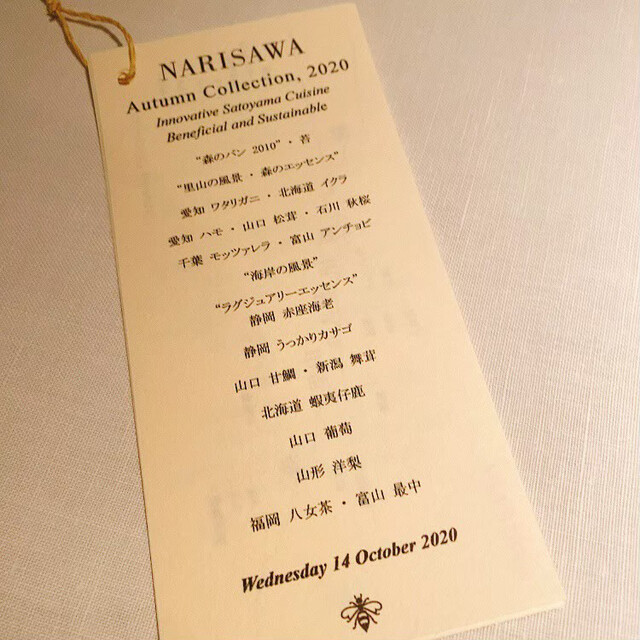 NARISAWA
Autumn Collection, 2020
Innovative Satoyama Cuisine
Beneficial and Sustainable
“森のパン 2010”・苔
“里山の風景・森のエッセンス”
愛知 ワタリガニ・北海道 イクラ
愛知 ハモ・山口 松茸・石川 秋桜
千葉 モッツァレラ・富山 アンチョビ
“海岸の風景”
“ラグジュアリーエッセンス”
静岡 赤座海老
静岡 うっかりカサゴ
山口 甘鯛・新潟 舞茸
北海道 蝦夷仔鹿
山口 葡萄
山形 洋梨
福岡 八女茶・富山 最中
Wednesday 14 October 2020